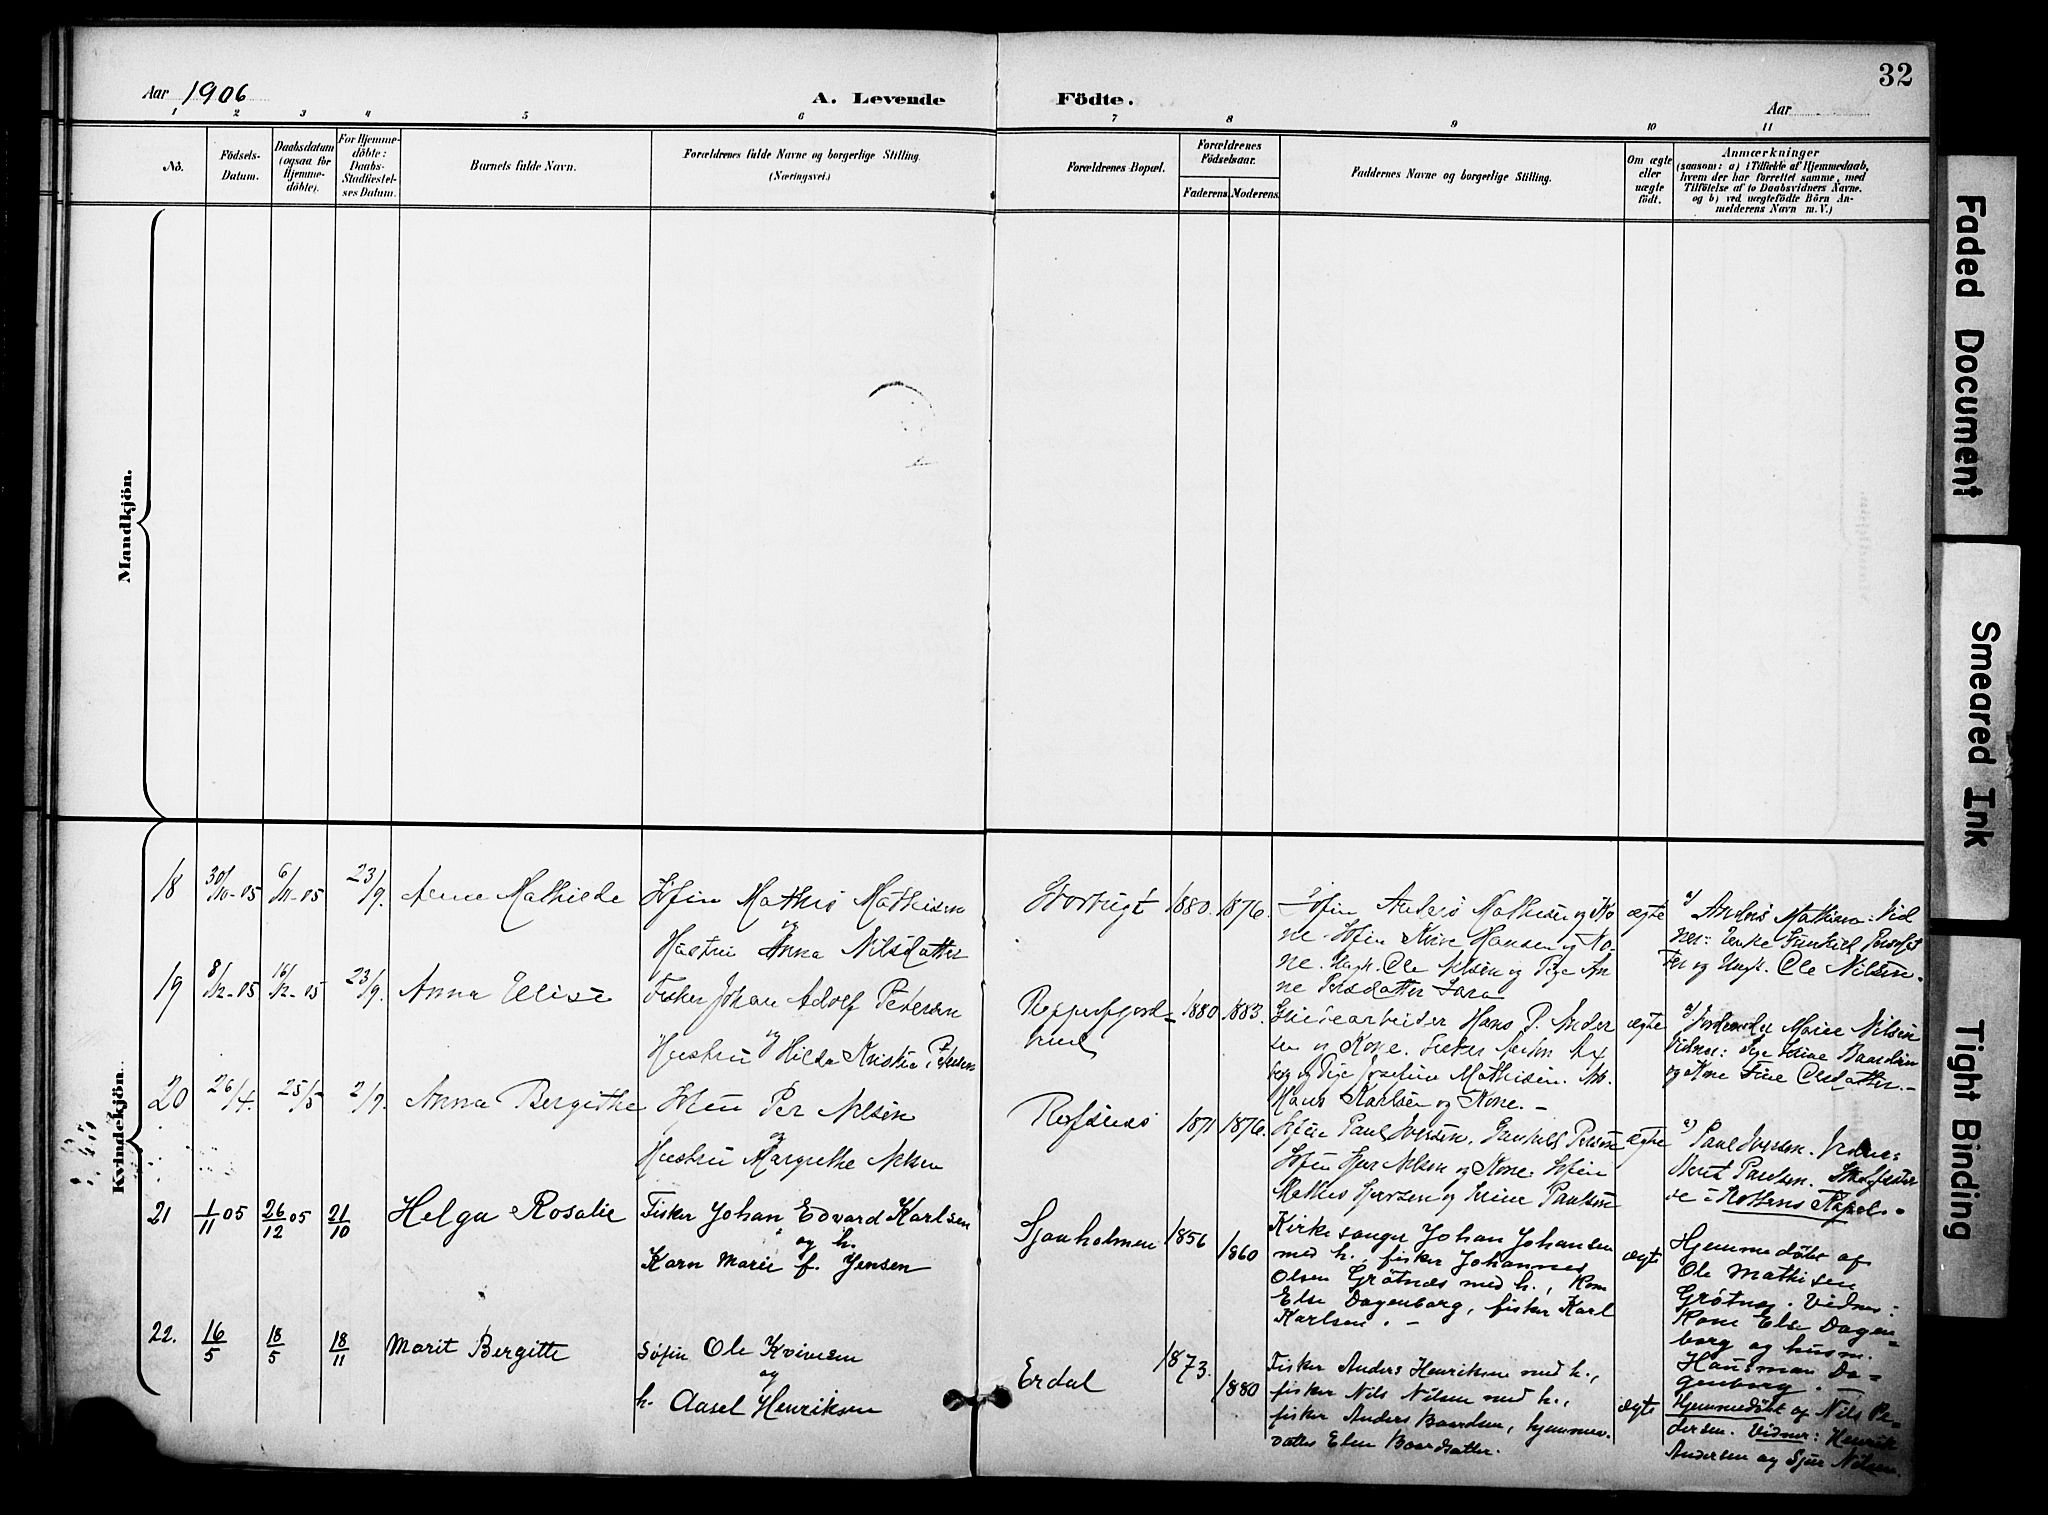 Aar 1906
A. Levende Födte.
Aar
32
1 2 3 4 5 6 7 8 9 10 11
No.
Födsels-
Datum.
Daabsdatum
(ogsaa for
Hjemme-
döbte).
For Hjemme-
döbte:
Daabs-
Stadfæstel-
ses Datum.
Barnets fulde Navn.
Forældrenes fulde Navne og borgerlige Stilling.
(Næringsvei.)
Forældrenes Bopæl.
Forældrenes
Födselsaar.
Faderens. Moderens.
Faddernes Navne og borgerlige Stilling.
Om ægte
eller
uægte
födt.
Anmærkninger
(saasom: a) i Tilfælde af Hjemmedaab,
hvem der har forrettet samme, med
Tilföielse af to Daabsvidners Navne.
og b) ved uægtefödte Börn An-
melderens Navn m. V.)
Mandkjön.
Kvindekjön.
18 30/10-05 6/11-05 23/9. Anne Mathilde
Söfin Mathis Mathisen
og
Hustru Anna Nilsdatter
1880. 1876.
Söfin Anders Mathisen og Ko
ne. Söfin Hansen og Ko-
ne. Ungk. Ole Nilsen og Pige An
ne Persdatter Sara
ægte
a) Anders Mathisen. Vid
ner:
og Ungk. Ole Nilsen.
19 8/12-05 16/12-05 23/9. Anna Elise
Fisker Johan Adolf Petersen
og
Hustru Hilda Kristine Petersen
Repparfjord-
bund
1880 1883.
Hans P. Ander
sen og Kone. Fisker
og Pige Josefine Mathisen.
Hans Karlsen og Kone. -
ægte
a) Marie Nilsen
Vidner: Pige
og Kone Olsdatter. -
20 26/4. 25/5 2/9. Anna Bergithe
Söfin Per Nilsen
og
Hustru Margrethe Nilsen
Refsnes
1871 1876.
Söfin Paul Iversen.
Söfin Iver Nilsen og Kone. Söfin
Mathis Iversen og Paulsen
ægte
a) Paul Iversen. Vidner:
Paulsen.
i Kapel.
21 1/11 05 26/12 05 21/10 Helga Rosalie
Fisker Johan Edvard Karlsen
og h.
Karn Marie f. Jensen
Sjaaholmen 1856 1860
Kirkesanger Johan Johansen
med h., fisker Johannes
Olsen Grötnæs med h., Kone
Else Dagenborg, fisker Karl
Karlsen. -
ægte
Hjemmedöbt af
Ole Mathisen
Grötnæs. Vidner:
Kone Else Dagen-
borg og husm.
Hausman Da-
genborg. -
22. 16/5 18/5 18/11 Marit Bergitte
Söfin Ole Kvivesen
og
h. Aasel Henriksen
Erdal 1873. 1880
Fisker Anders Henriksen med h.,
fisker Nils Nilsen med h.,
fisker Anders Baardsen, hjemmev.
datter Elen Baardsdatter.
ægte
Hjemmedöbt af Nils Pe-
dersen. Vidner: Henrik
Andersen og Sjur Nilsen.
Faded Document
Smeared Ink
Tight Binding